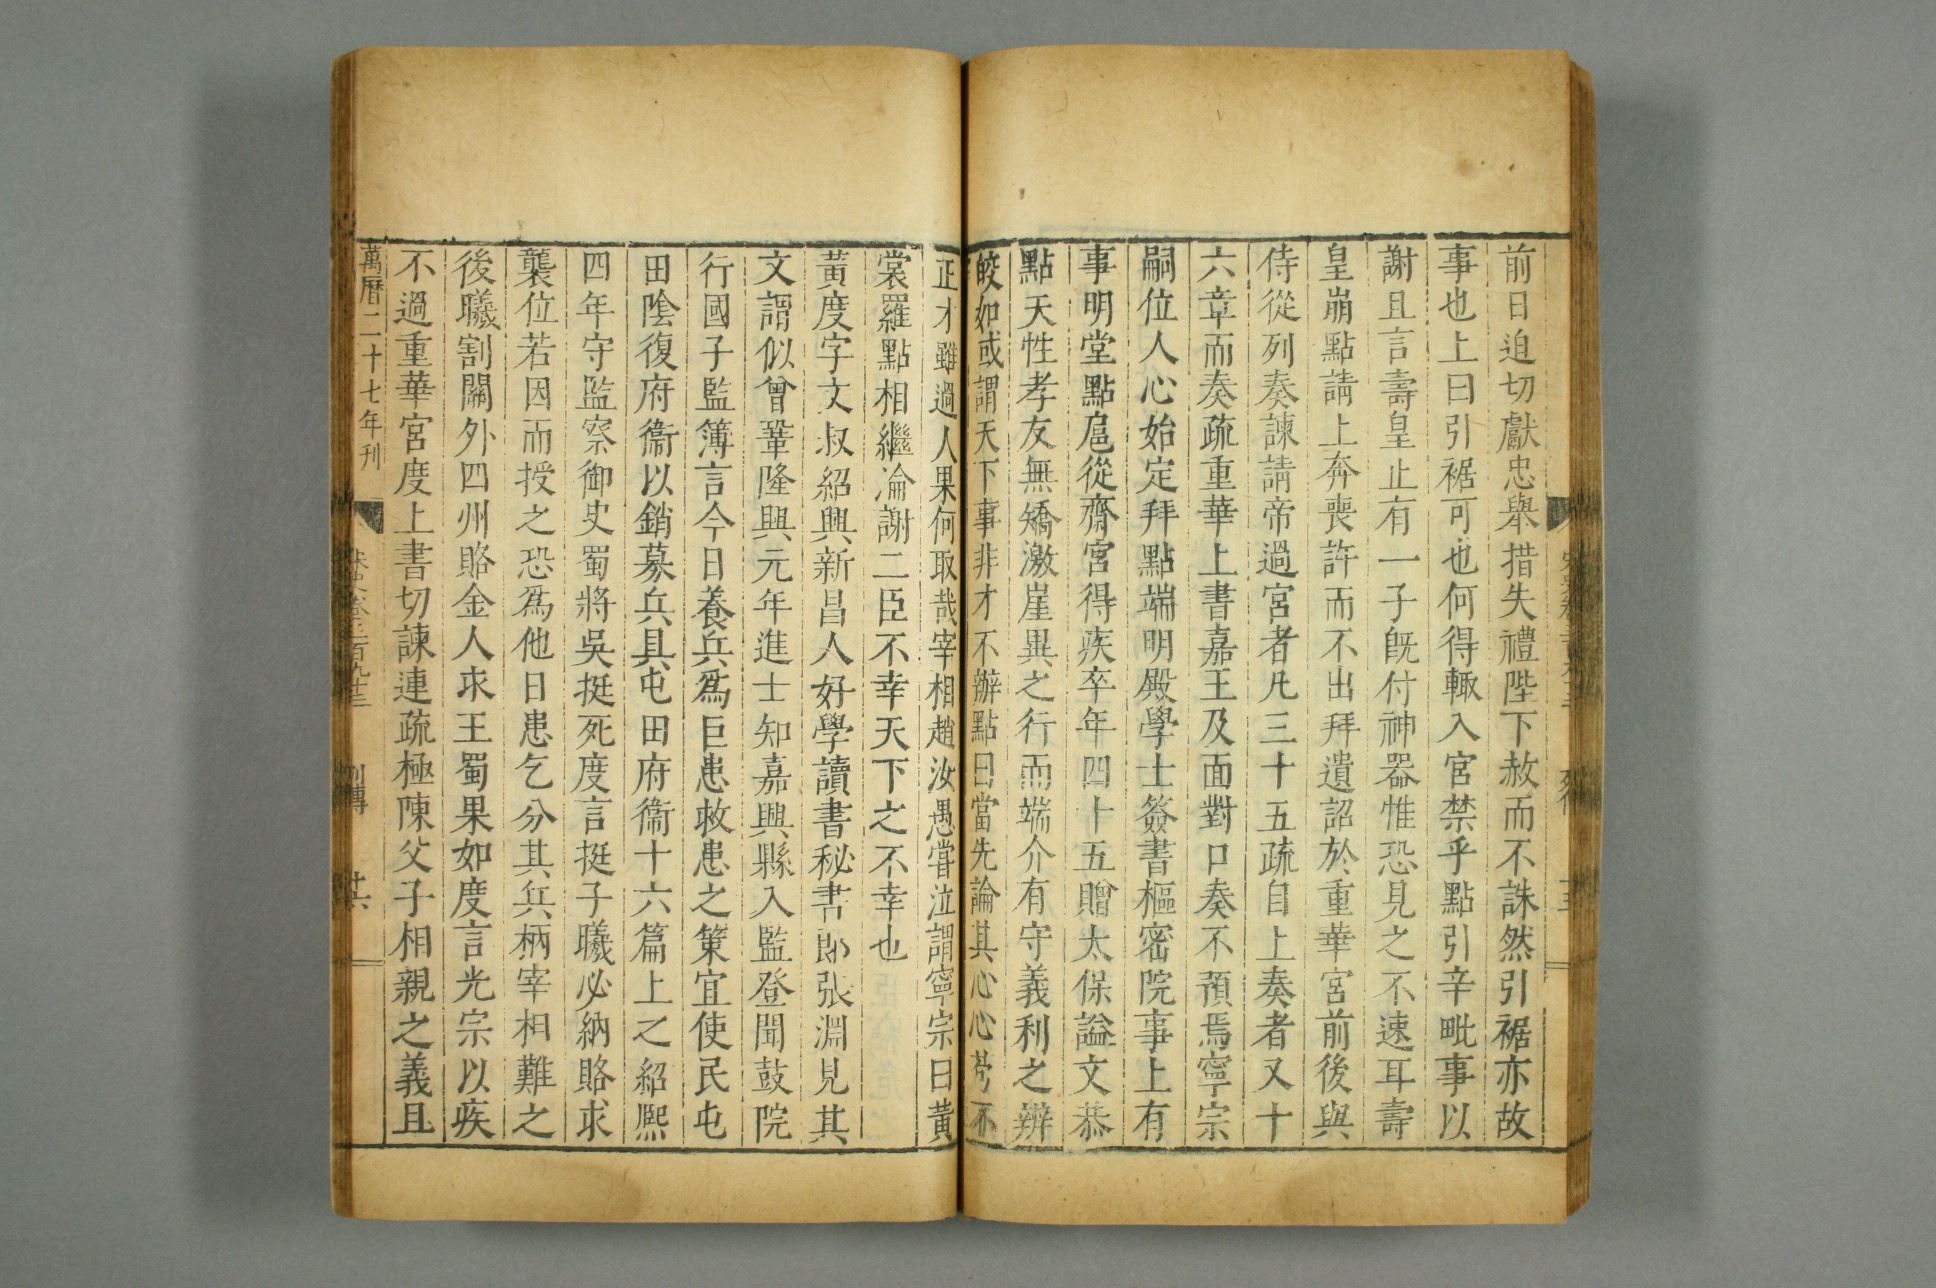 前日迫切獻忠舉措失禮陛下赦而不誅然引裾亦故
事也上曰引裾可也何得輒入宮禁乎點引辛毗事以
謝且言壽皇止有一子旣付神器惟恐見之不速耳壽
皇崩點請上奔喪許而不出拜遺詔於重華宮前後與
侍從列奏諫請帝過宮者凡三十五疏自上奏者又十
六章而奏疏重華上書嘉王及面對口奏不預焉寧宗
嗣位人心始定拜點端明殿學士簽書樞密院事上有
事明堂點扈從齋宮得疾卒年四十五贈太保謚文恭
點天性孝友無矯激崖異之行而端介有守義利之辨
皎如或謂天下事非才不辦點曰當先論其心心苟不
正才雖過人果何取哉宰相趙汝愚嘗泣謂寧宗曰黃
裳羅點相繼淪謝二臣不幸天下之不幸也
黃度字文叔紹興新昌人好學讀書秘書郎張淵見其
文謂似曾鞏隆興元年進士知嘉興縣入監登聞鼓院
行國子監簿言今日養兵爲巨患救患之策宜使民屯
田陰復府衞以銷募兵具屯田府衞十六篇上之紹熙
四年守監察御史蜀將吳挺死度言挺子曦必納賂求
襲位若因而授之恐爲他日患乞分其兵柄宰相難之
後曦割關外四州賂金人求王蜀果如度言光宗以疾
不過重華宮度上書切諫連疏極陳父子相親之義且
萬曆二十七年刊
宋史卷三百九十三 列傳 十六